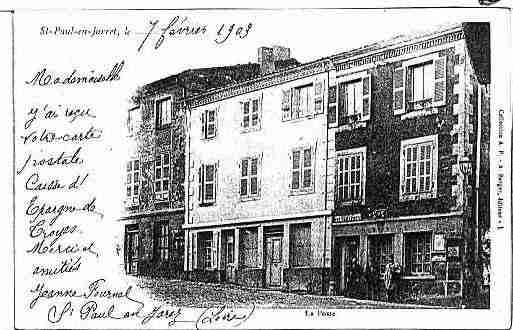 St-Paul-en-Jarret, le 7 février 1903
Mademoiselle
j'ai reçu
votre carte
postale
Caisse d'
Epargne de
Troyes
Merci et
amitiés
Jeanne Fournel
St Paul en Jarez (Loire)
La Poste
Collection A. P. -